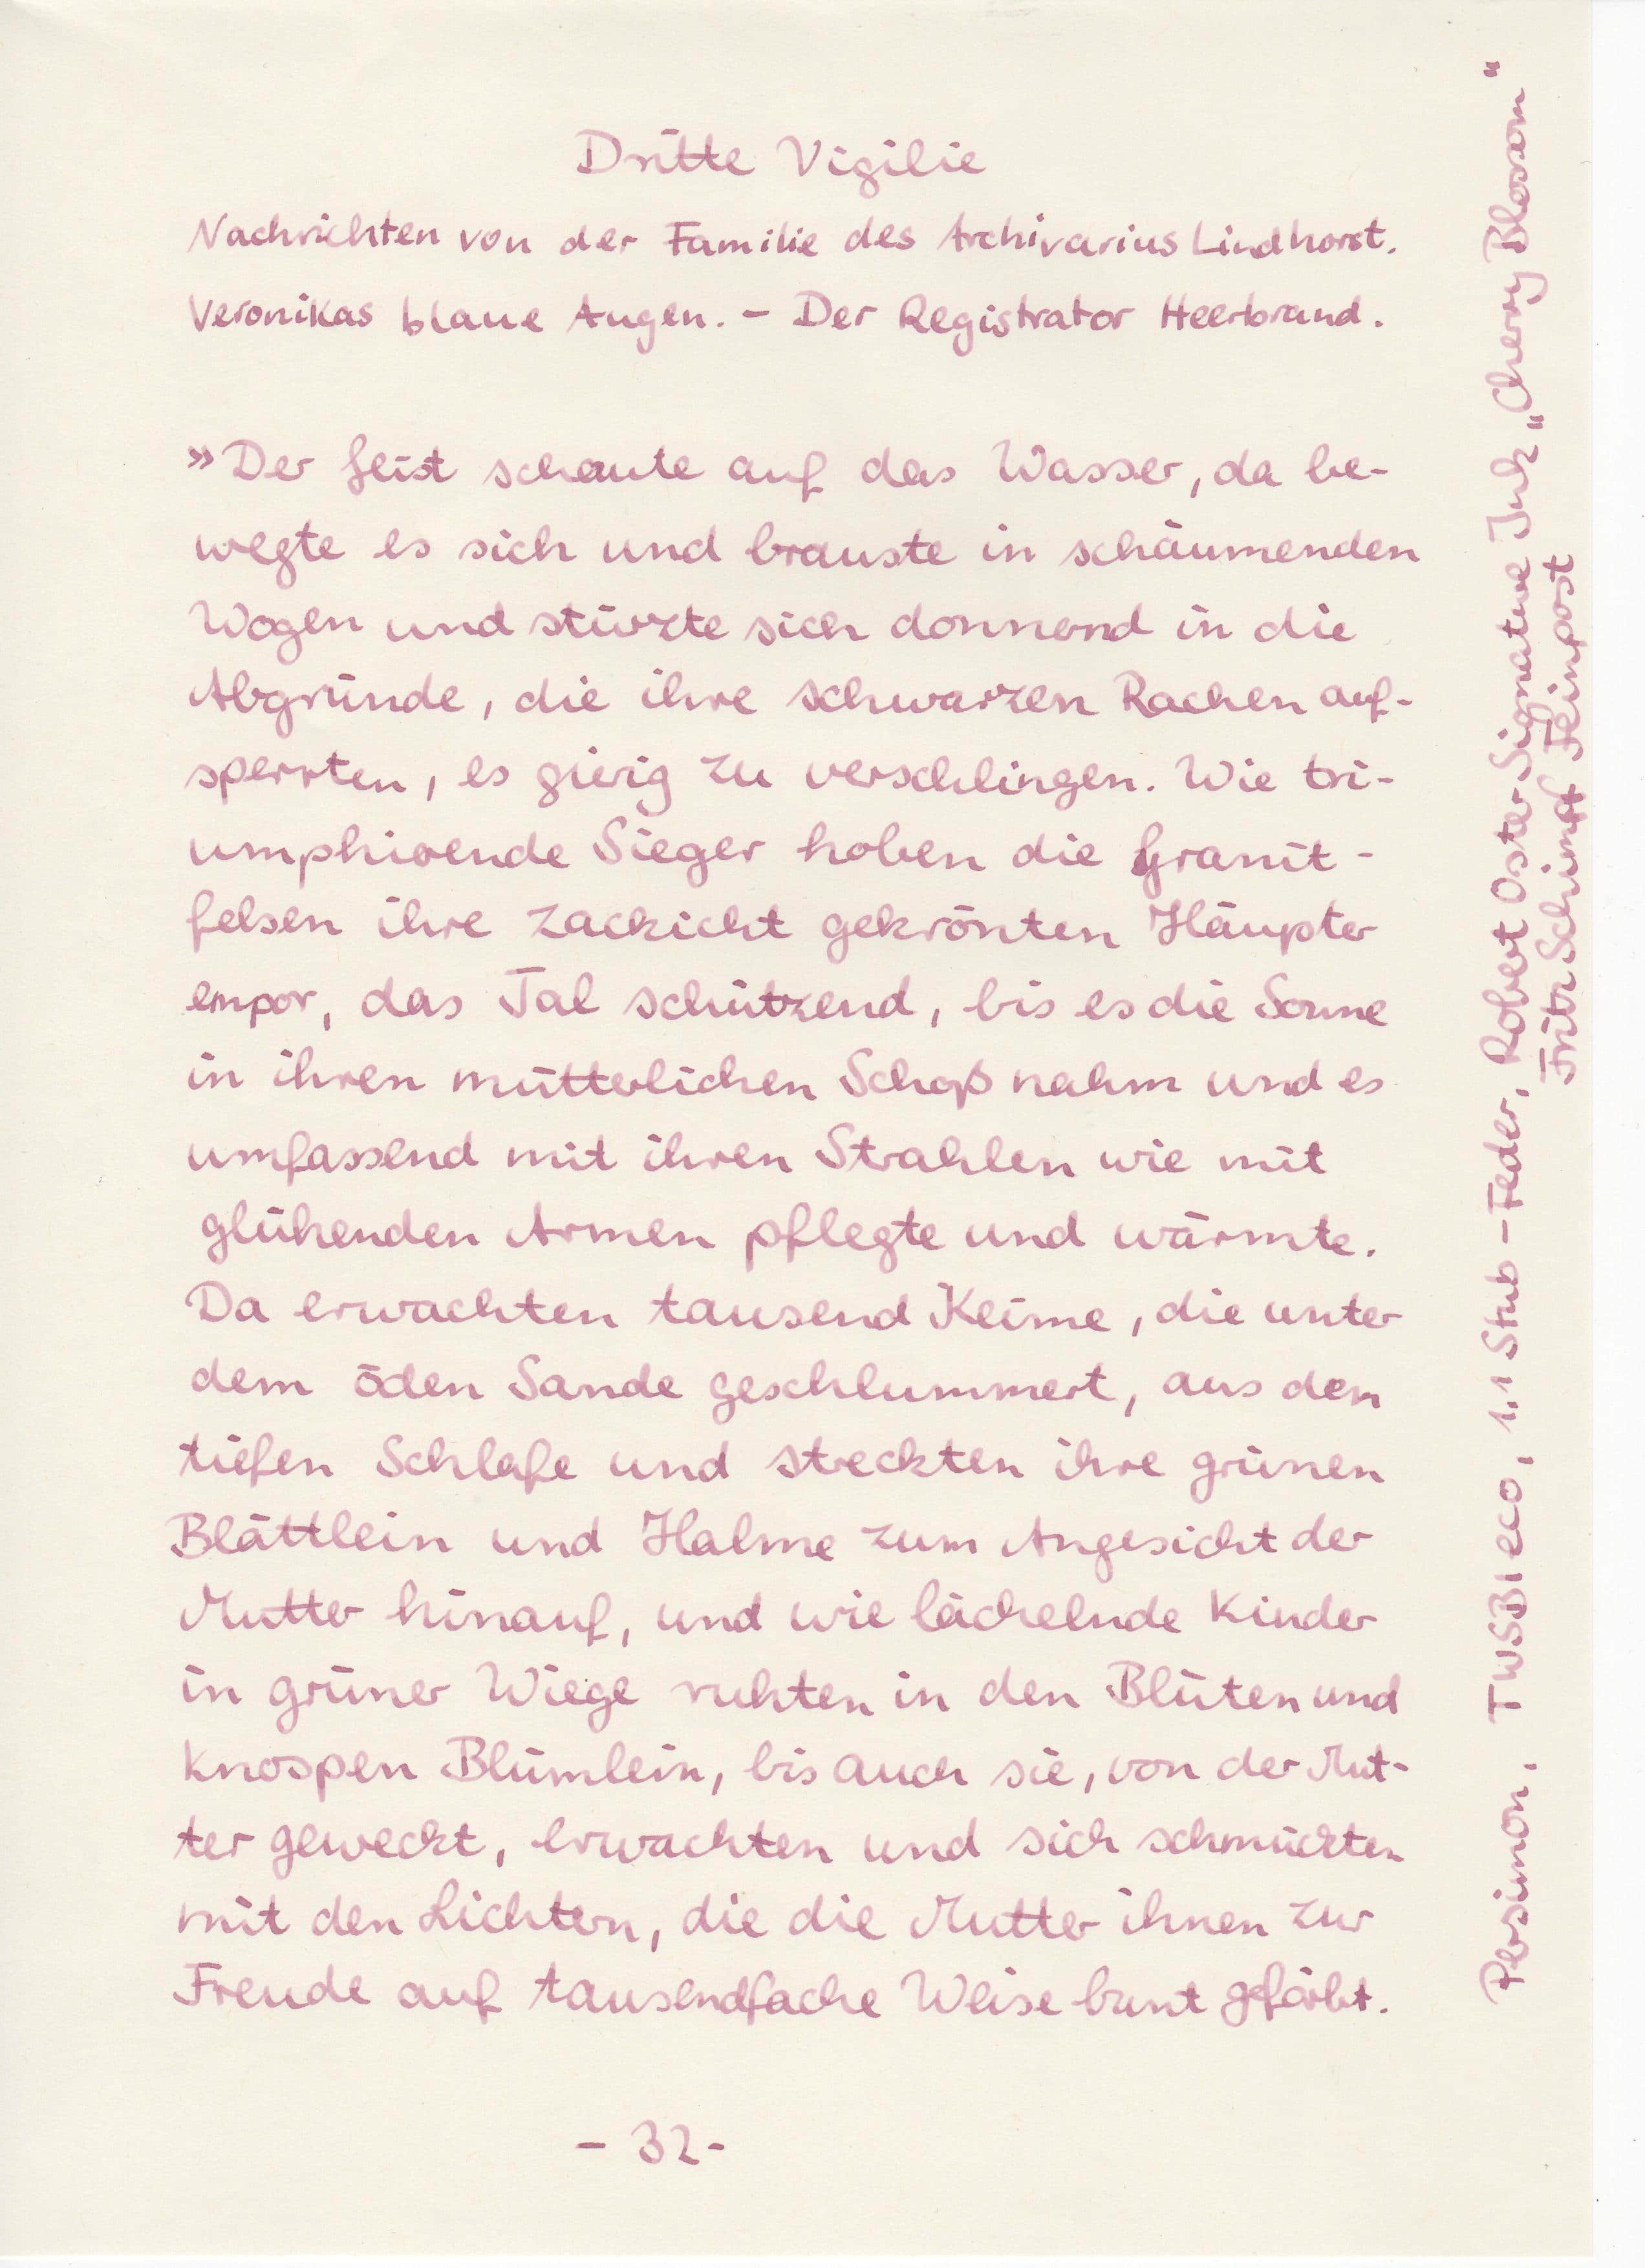 Dritte Vigilie
Nachrichten von der Familie des Archivarius Lindhorst.
Veronikas blaue Augen. – Der Registrator Heerbrand.
»Der Geist schaute auf das Wasser, da be-
wegte es sich und brauste in schäumenden
Wogen und stürzte sich donnernd in die
Abgründe, die ihre schwarzen Rachen auf-
sperrten, es gierig zu verschlingen. Wie tri-
umphirende Sieger hoben die Granit-
felsen ihre zackicht gekrönten Häupter
empor, das Tal schützend, bis es die Sonne
in ihren mütterlichen Schoß nahm und es
umfassend mit ihren Strahlen wie mit
glühenden Armen pflegte und wärmte.
Da erwachten tausend Keime, die unter
dem öden Sande geschlummert, aus dem
tiefen Schlafe und streckten ihre grünen
Blättlein und Halme zum Angesicht der
Mutter hinauf, und wie lächelnde Kinder
in grüner Wiege ruhten in den Blüten und
Knospen Blümlein, bis auch sie, von der Mut-
ter geweckt, erwachten und sich schmückten
mit den Lichtern, die die Mutter ihnen zur
Freude auf tausendfache Weise bunt gefärbt.
- 32 -
Persimon, TWSBI eco, 1.1 Stub-Feder, Robert Oster Signature Ink „Cherry Blossom"
Fritz Schimpf Feinpost